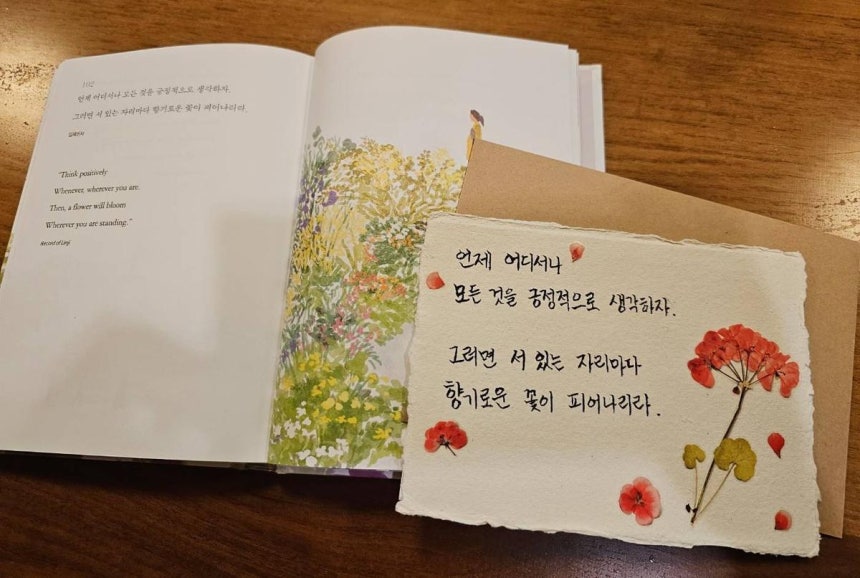 102
언제 어디서나 모든 것을 긍정적으로 생각하자.
그러면 서 있는 자리마다 향기로운 꽃이 피어나리라.
임제선사
"Think positively
Whenever, wherever you are.
Then, a flower will bloom
Wherever you are standing."
Record of Linji
언제 어디서나
모든 것을 긍정적으로 생각하자.
그러면 서 있는 자리마다
향기로운 꽃이 피어나리라.